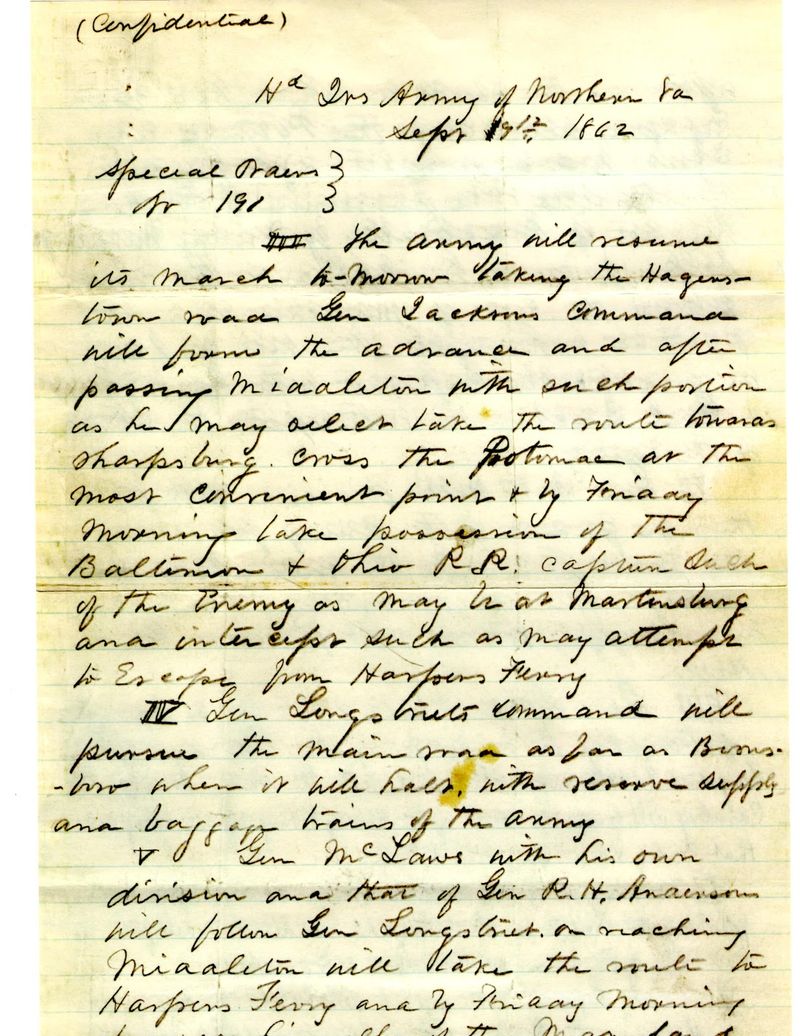 (Confidential)
Hd Qrs Army of Northern Va
Sept 1862
Special Orders }
No 191 }
III The Army will resume
its march to-morrow taking the Hagers-
town road Gen Jacksons Command
will form the advance and after
passing Middleton with such portion
as he may select take the route towards
Sharpsburg. Cross the Potomac at the
most convenient point & by Friday
Morning take possession of the
Baltimore & Ohio R.R. capture such
of the Enemy as may be at Martinsburg
and intercept such as may attempt
to Escape from Harpers Ferry
IV Gen Longstreets command will
pursue the main road as far as Boons-
-boro where it will halt, with reserve supply
and baggage trains of the army
V Gen McLaws with his own
division and that of Gen R. H. Andersons
will follow Gen Longstreet. on reaching
Middleton will take the route to
Harpers Ferry and by Friday Morning